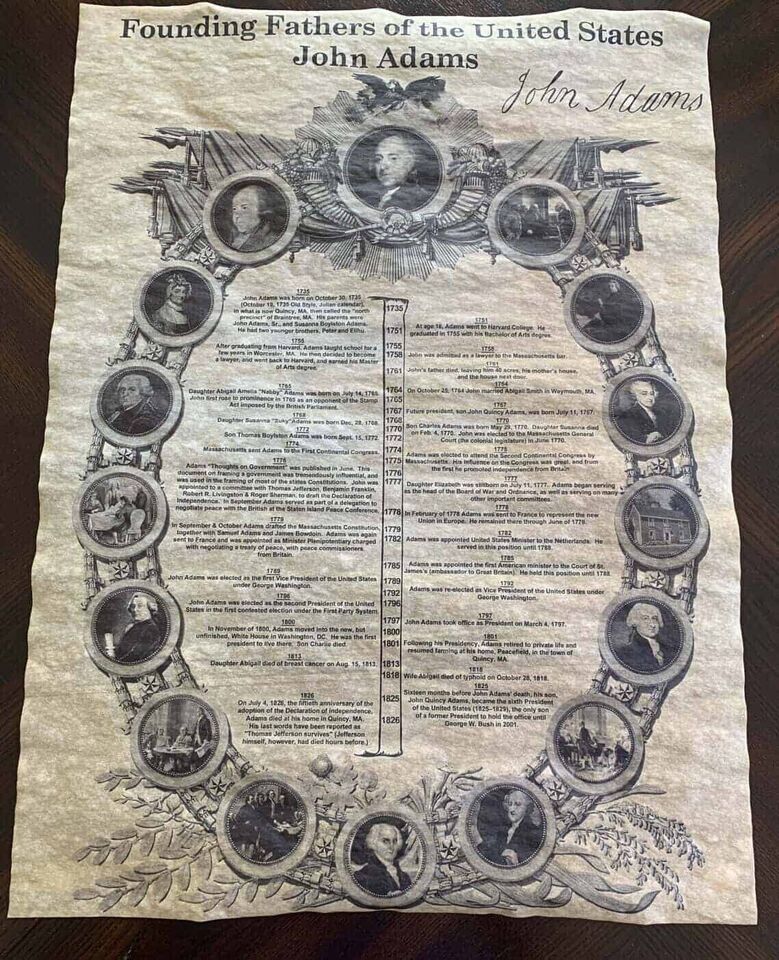 Founding Fathers of the United States
John Adams
John Adams
1735
John Adams was born on October 30, 1735
(October 19, 1735 Old Style, Julian calendar),
in what is now Quincy, MA, then called the "north
precinct" of Braintree, MA. His parents were
John Adams, Sr., and Susanna Boylston Adams.
He had two younger brothers, Peter and Elihu.
1755
After graduating from Harvard, Adams taught school for a
few years in Worcester, MA. He then decided to become
a lawyer, and went back to Harvard, and earned his Master
of Arts degree.
1765
Daughter Abigail Amelia "Nabby" Adams was born on July 14, 1765.
John first rose to prominence in 1765 as an opponent of the Stamp
Act imposed by the British Parliament.
1768
Daughter Susanna "Suky" Adams was born Dec. 28, 1768.
1772
Son Thomas Boylston Adams was born Sept. 15, 1772
1774
Massachusetts sent Adams to the First Continental Congress.
1776
Adams "Thoughts on Government" was published in June. This
document on framing a government was tremendously influential, and
was used in the framing of most of the states Constitutions. John was
appointed to a committee with Thomas Jefferson, Benjamin Franklin,
Robert R. Livingston & Roger Sherman, to draft the Declaration of
Independence. In September Adams served as part of a delegation to
negotiate peace with the British at the Staten Island Peace Conference.
1779
In September & October Adams drafted the Massachusetts Constitution,
together with Samuel Adams and James Bowdoin. Adams was again
sent to France and was appointed as Minister Plenipotentiary charged
with negotiating a treaty of peace, with peace commissioners
from Britain.
1789
John Adams was elected as the first Vice President of the United States
under George Washington.
1796
John Adams was elected as the second President of the United
States in the first contested election under the First Party System.
1800
In November of 1800, Adams moved into the new, but
unfinished, White House in Washington, DC. He was the first
president to live there. Son Charlie died.
1813
Daughter Abigail died of breast cancer on Aug. 15, 1813.
1826
On July 4, 1826, the fiftieth anniversary of the
adoption of the Declaration of Independence,
Adams died at his home in Quincy, MA.
His last words have been reported as
"Thomas Jefferson survives" (Jefferson
himself, however, had died hours before.)
1735
1751
1755
1758
1761
1764
1765
1767
1768
1770
1772
1774
1775
1776
1777
1778
1779
1782
1785
1789
1792
1796
1797
1800
1801
1813
1818
1825
1826
1751
At age 16, Adams went to Harvard College. He
graduated in 1755 with his Bachelor of Arts degree.
1758
John was admitted as a lawyer to the Massachusetts bar.
1761
John's father died, leaving him 40 acres, his mother's house,
and the house next door.
1764
On October 25, 1764 John married Abigail Smith in Weymouth, MA.
1767
Future president, son John Quincy Adams, was born July 11, 1767.
1770
Son Charles Adams was born May 29, 1770. Daughter Susanna died
on Feb. 4, 1770. John was elected to the Massachusetts General
Court (the colonial legislature) in June 1770.
1775
Adams was elected to attend the Second Continental Congress by
Massachusetts. His influence on the Congress was great, and from
the first he promoted independence from Britain
1777
Daughter Elizabeth was stillborn on July 11, 1777. Adams began serving
as the head of the Board of War and Ordnance, as well as serving on many
other important committees.
1778
In February of 1778 Adams was sent to France to represent the new
Union in Europe. He remained there through June of 1779.
1782
Adams was appointed United States Minister to the Netherlands. He
served in this position until 1788.
1785
Adams was appointed the first American minister to the Court of St.
James's (ambassador to Great Britain). He held this position until 1788.
1792
Adams was re-elected as Vice President of the United States under
George Washington.
1797
John Adams took office as President on March 4, 1797.
1801
Following his Presidency, Adams retired to private life and
resumed farming at his home, Peacefield, in the town of
Quincy, MA.
1818
Wife Abigail died of typhoid on October 28, 1818.
1825
Sixteen months before John Adams' death, his son,
John Quincy Adams, became the sixth President
of the United States (1825-1829), the only son
of a former President to hold the office until
George W. Bush in 2001.